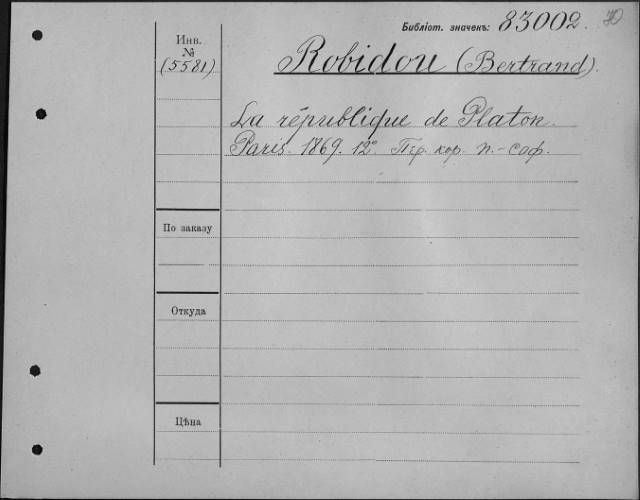 Библіот. значекъ: 83002.
Инв.
№
(5581)
Robidou (Bertrand).
La république de Platon.
Paris. 1869. 12°. Пер. кор. п.-саф.
По заказу
Откуда
Цѣна